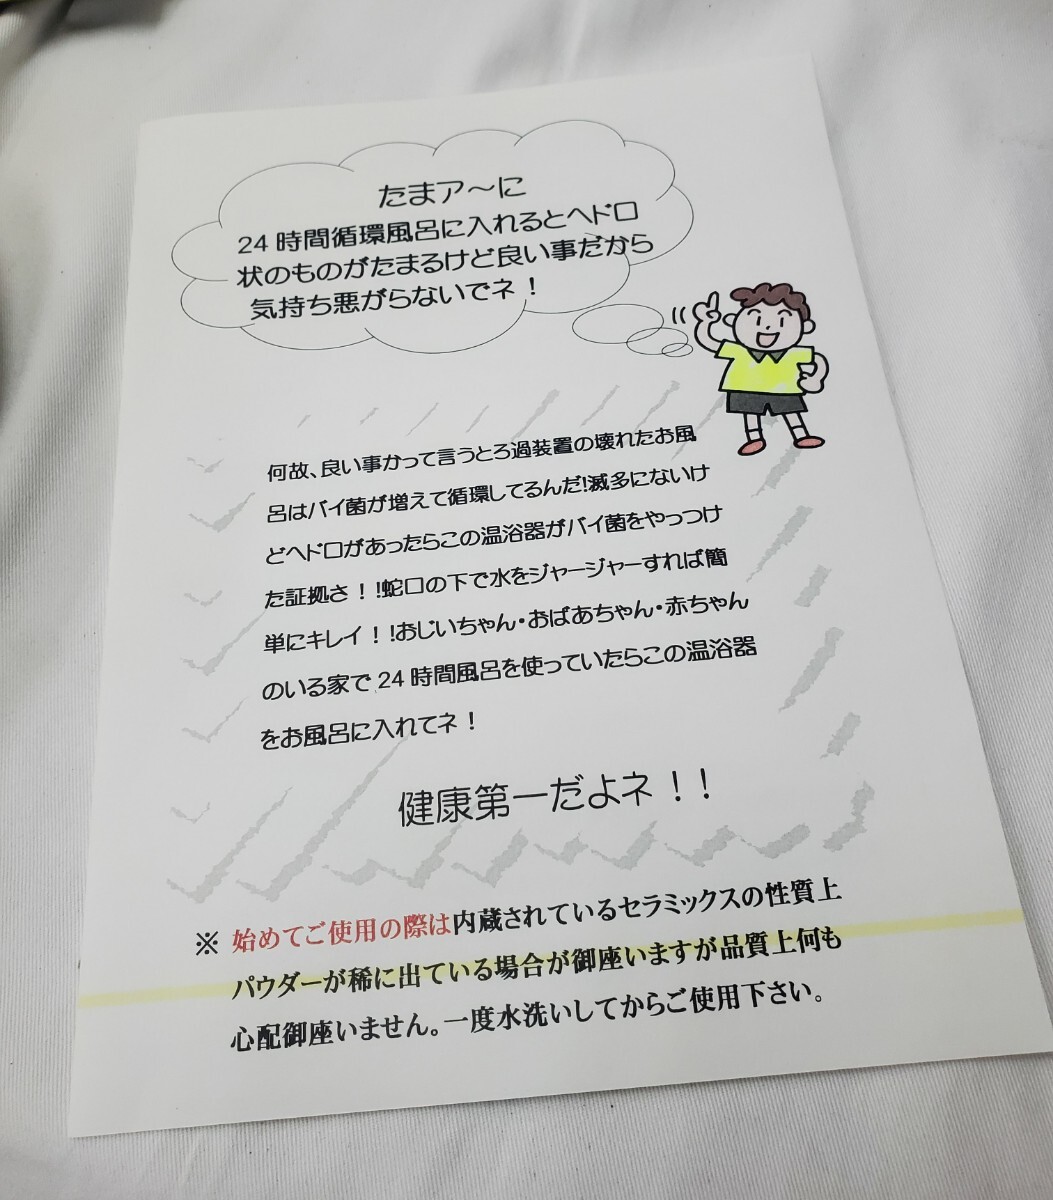 たまア～に
24時間循環風呂に入れるとヘドロ
状のものがたまるけど良い事だから
気持ち悪がらないでネ！
何故、良い事かって言うとろ過装置の壊れたお風
呂はバイ菌が増えて循環してるんだ!滅多にないけ
どヘドロがあったらこの温浴器がバイ菌をやっつけ
た証拠さ！!蛇口の下で水をジャージャーすれば簡
単にキレイ！!おじいちゃん・おばあちゃん・赤ちゃん
のいる家で24時間風呂を使っていたらこの温浴器
をお風呂に入れてネ！
健康第一だよネ！！
※ 始めてご使用の際は内蔵されているセラミックスの性質上
パウダーが稀に出ている場合が御座いますが品質上何も
心配御座いません。一度水洗いしてからご使用下さい。